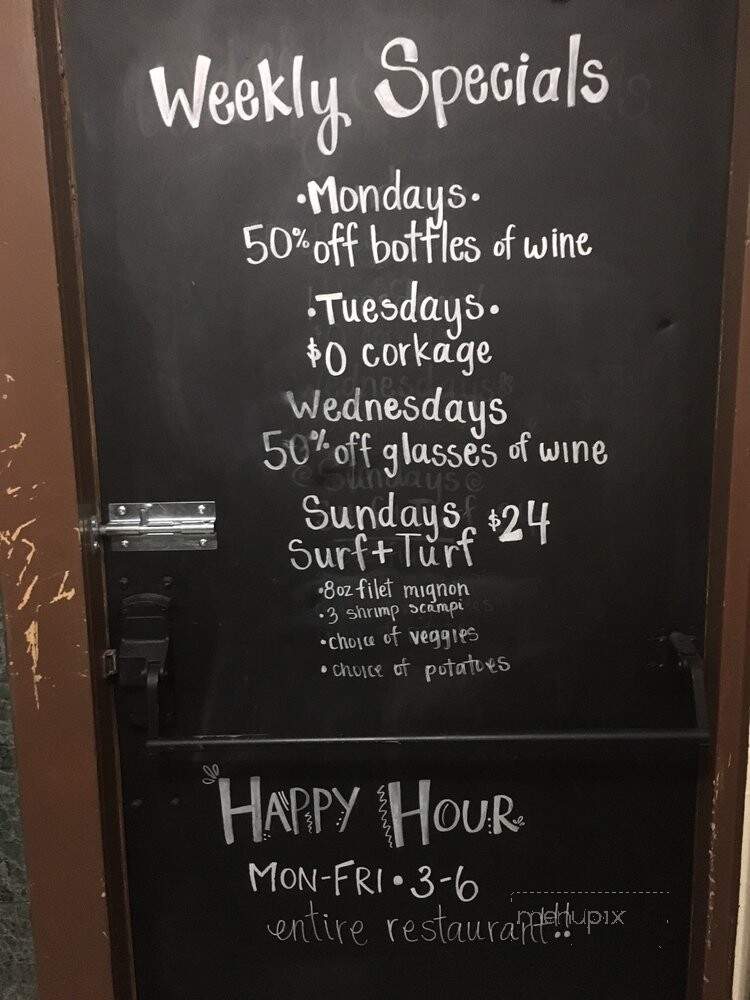 Weekly Specials
•Mondays•
50% off bottles of wine
•Tuesdays•
$0 corkage
Wednesdays
50% off glasses of wine
Sundays $24
Surf+Turf
•8oz filet mignon
•3 shrimp scampi
•choice of veggies
•choice of potatoes
HAPPY HOUR
MON-FRI•3-6
entire restaurant!!
menupix